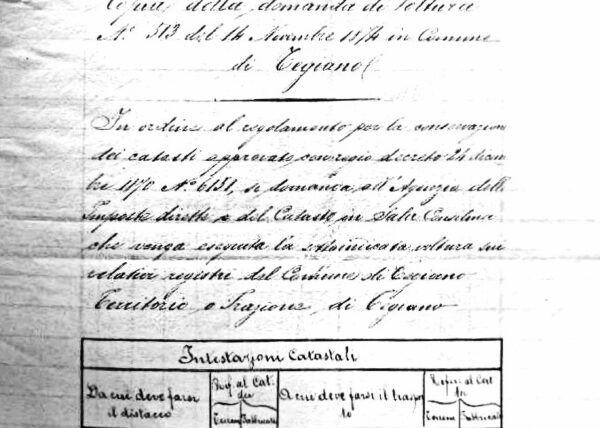 Copia della domanda di Voltura
N.° 513 del 14 Novembre 1874 in Comune
di Tegiano
In ordine al regolamento per la conservazione
dei catasti approvato con regio decreto 24 dicem
bre 1870 N.° 6151, si domanda all'Agenzia delle
Imposte dirette e del Catasto in Sala Consilina
che venga eseguita la sottoindicata voltura sui
relativi registri del Comune di Tegiano
Territorio o Frazione di Tegiano
Intestazioni Catastali
Da cui deve farsi il distacco
Rif. al Cat. dei
Terreni Fabbricati
A cui deve farsi il traspor to
Refer. al Cat dei
Terreni Fabbricati